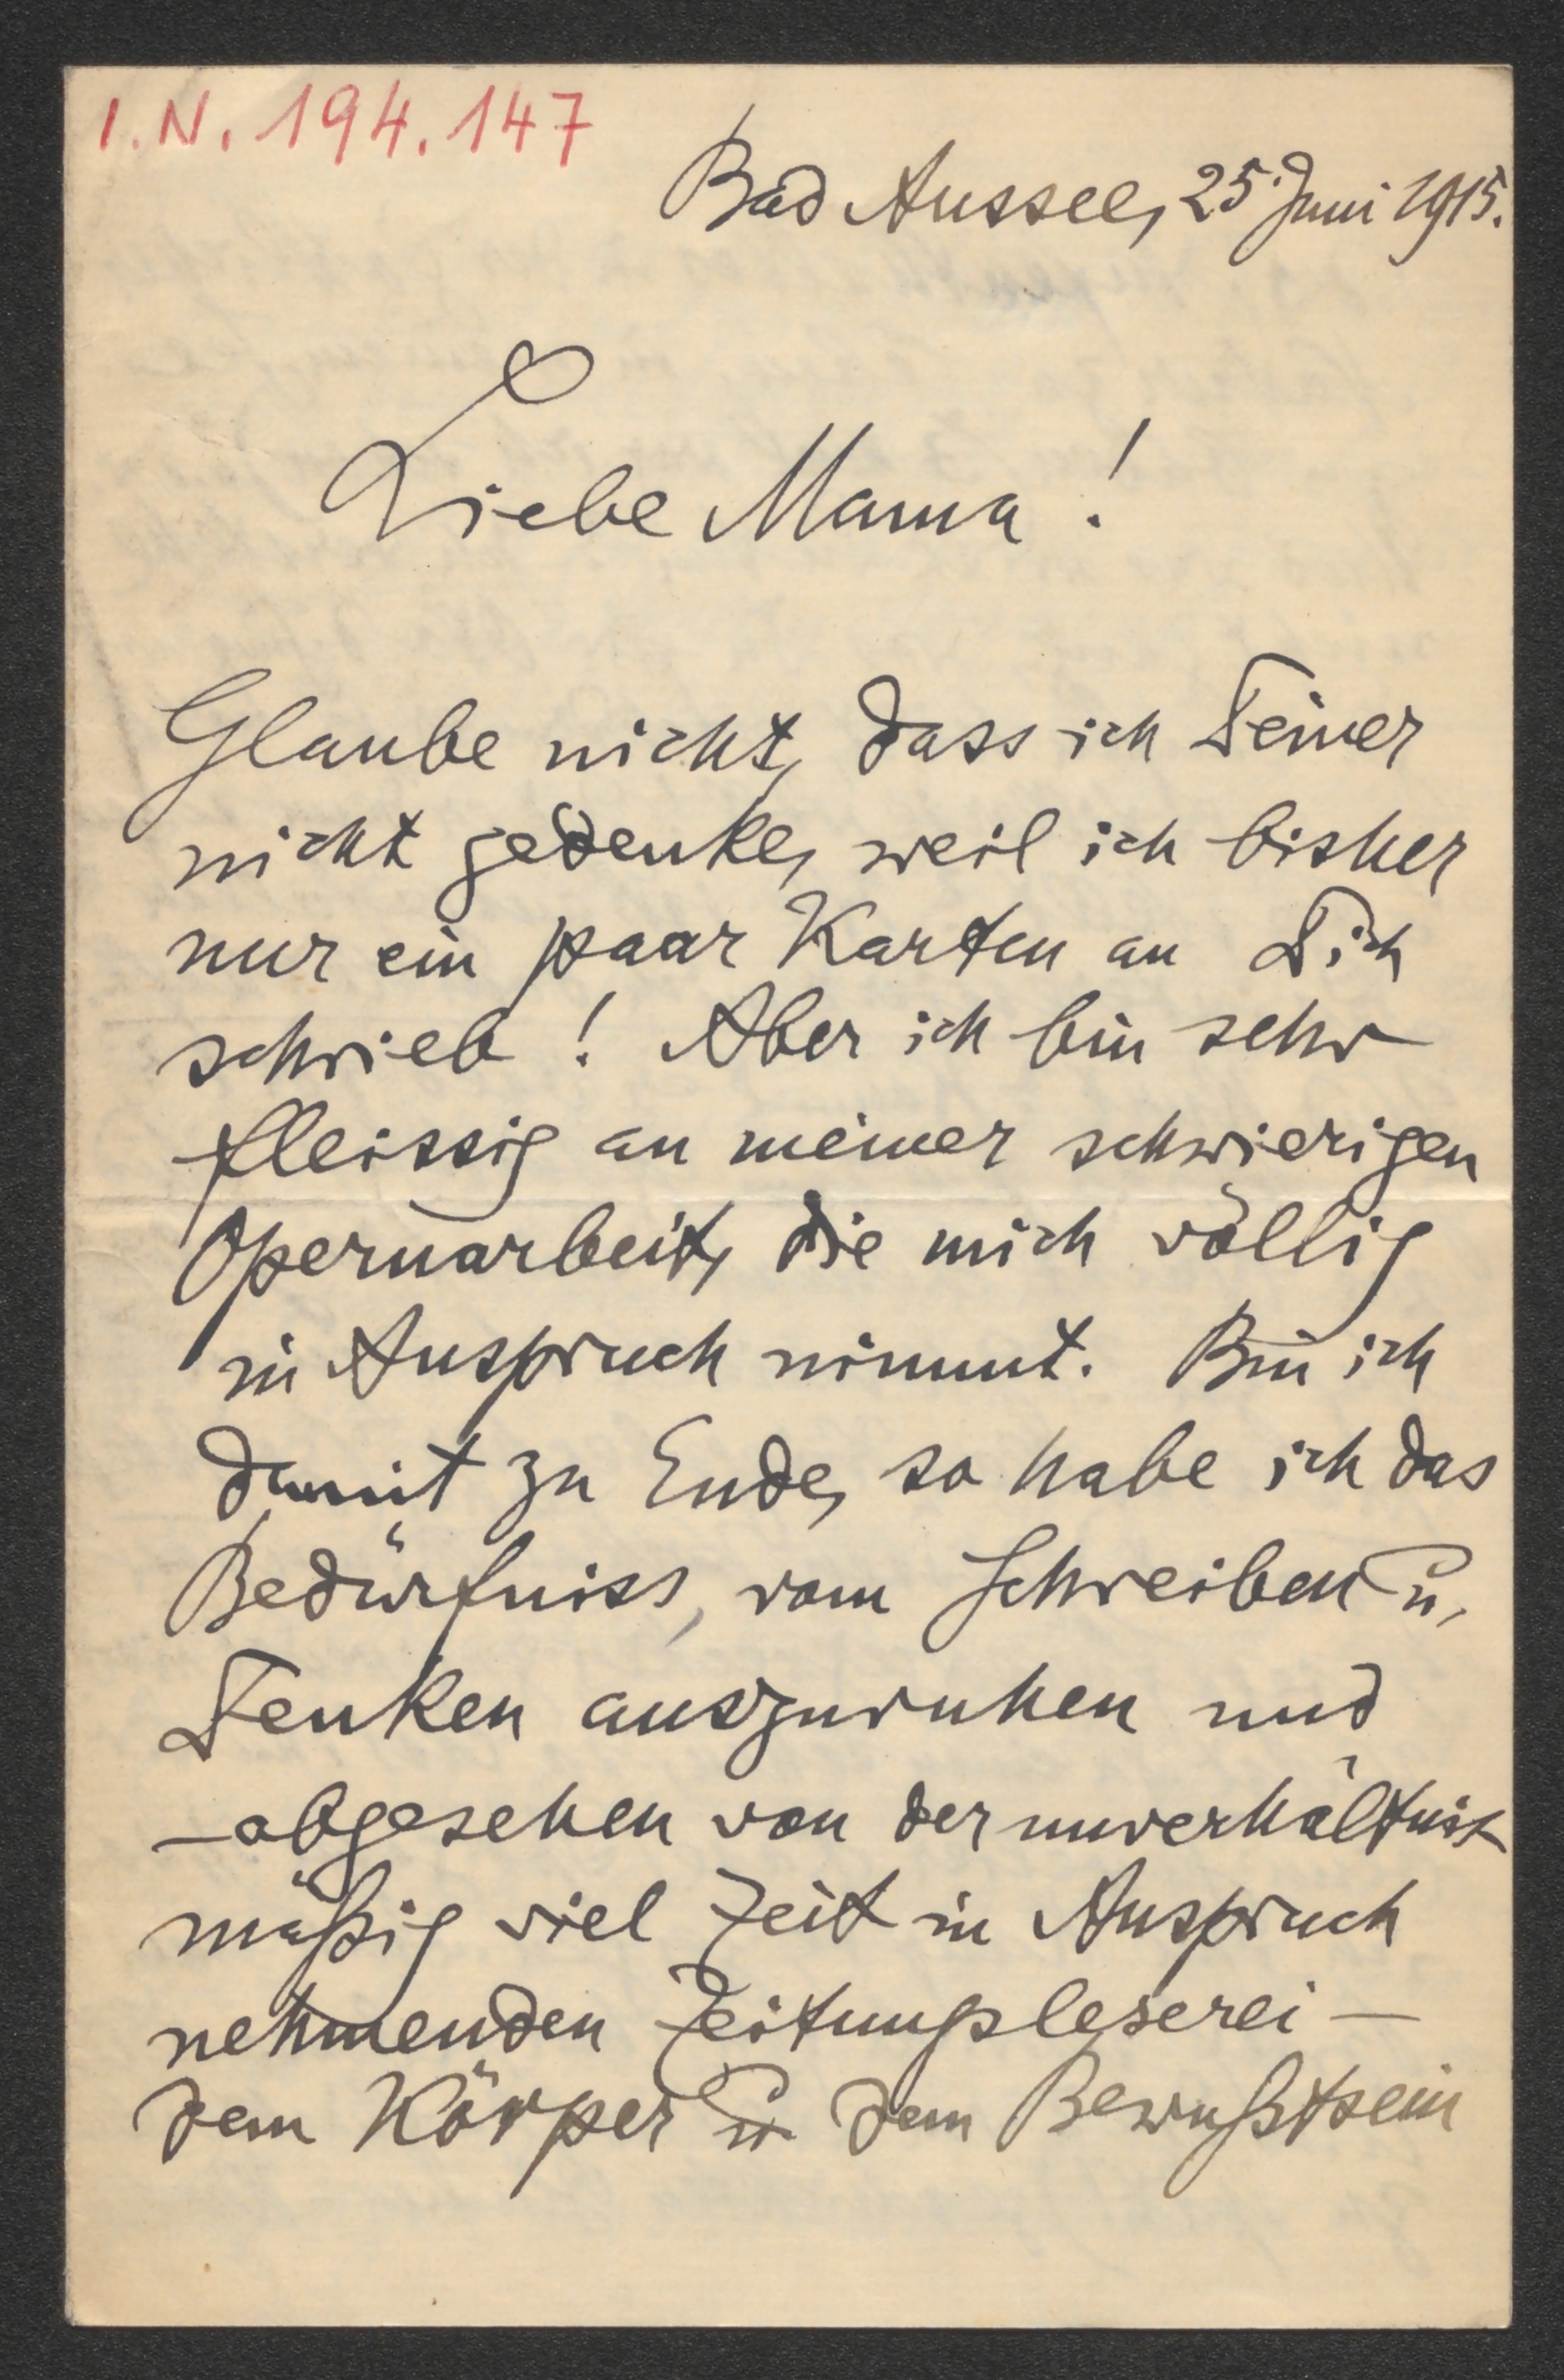 I.N. 194.147
Bad Aussee, 25. Juni 1915.
Liebe Mama!
Glaube nicht, dass ich Deiner
nicht gedenke, weil ich bisher
nur ein paar Karten an Dich
schrieb! Aber ich bin sehr
fleissig an meiner schwierigen
Opernarbeit, die mich völlig
in Anspruch nimmt. Bin ich
damit zu Ende, so habe ich das
Bedürfniss, vom Schreiben u.
Denken auszuruhen und
– abgesehen von der unverhältnis-
mäßig viel Zeit in Anspruch
nehmenden Zeitungsleserei –
dem Körper u. dem Bewußtsein